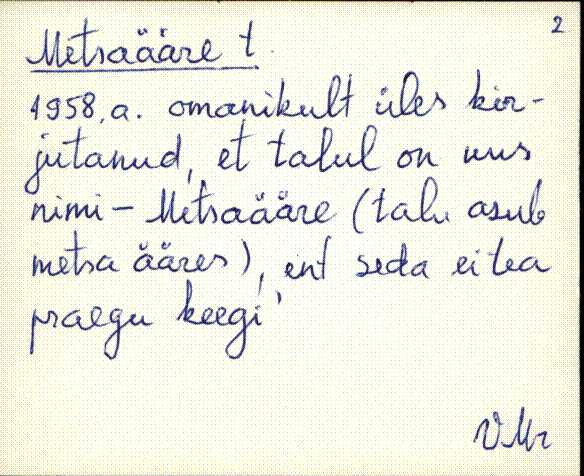 2
Metsaääre t.
1958. a. omanikult üles kir-
jutanud, et talul on uus
nimi – Metsaääre (talu asub
metsa ääres), ent seda ei tea
praegu keegi
VMr